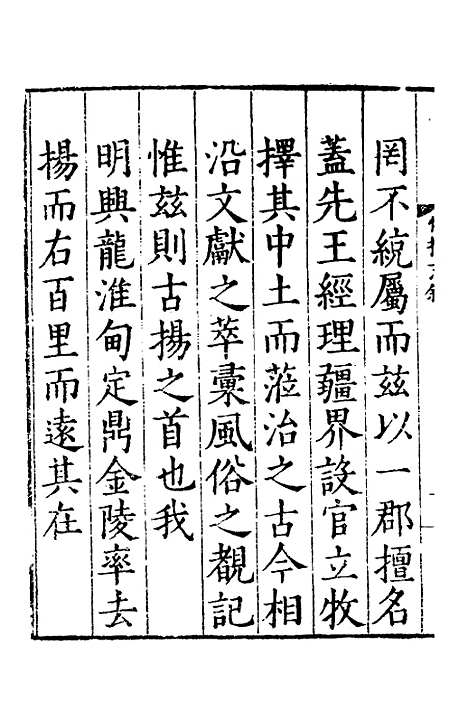 罔不統屬而茲以一郡擅名
蓋先王經理疆界設官立牧
擇其中土而蒞治之古今相
沿文獻之萃彙風俗之覩記
惟茲則古揚之首也我
明興龍淮甸定鼎金陵率去
揚而右百里而遠其在